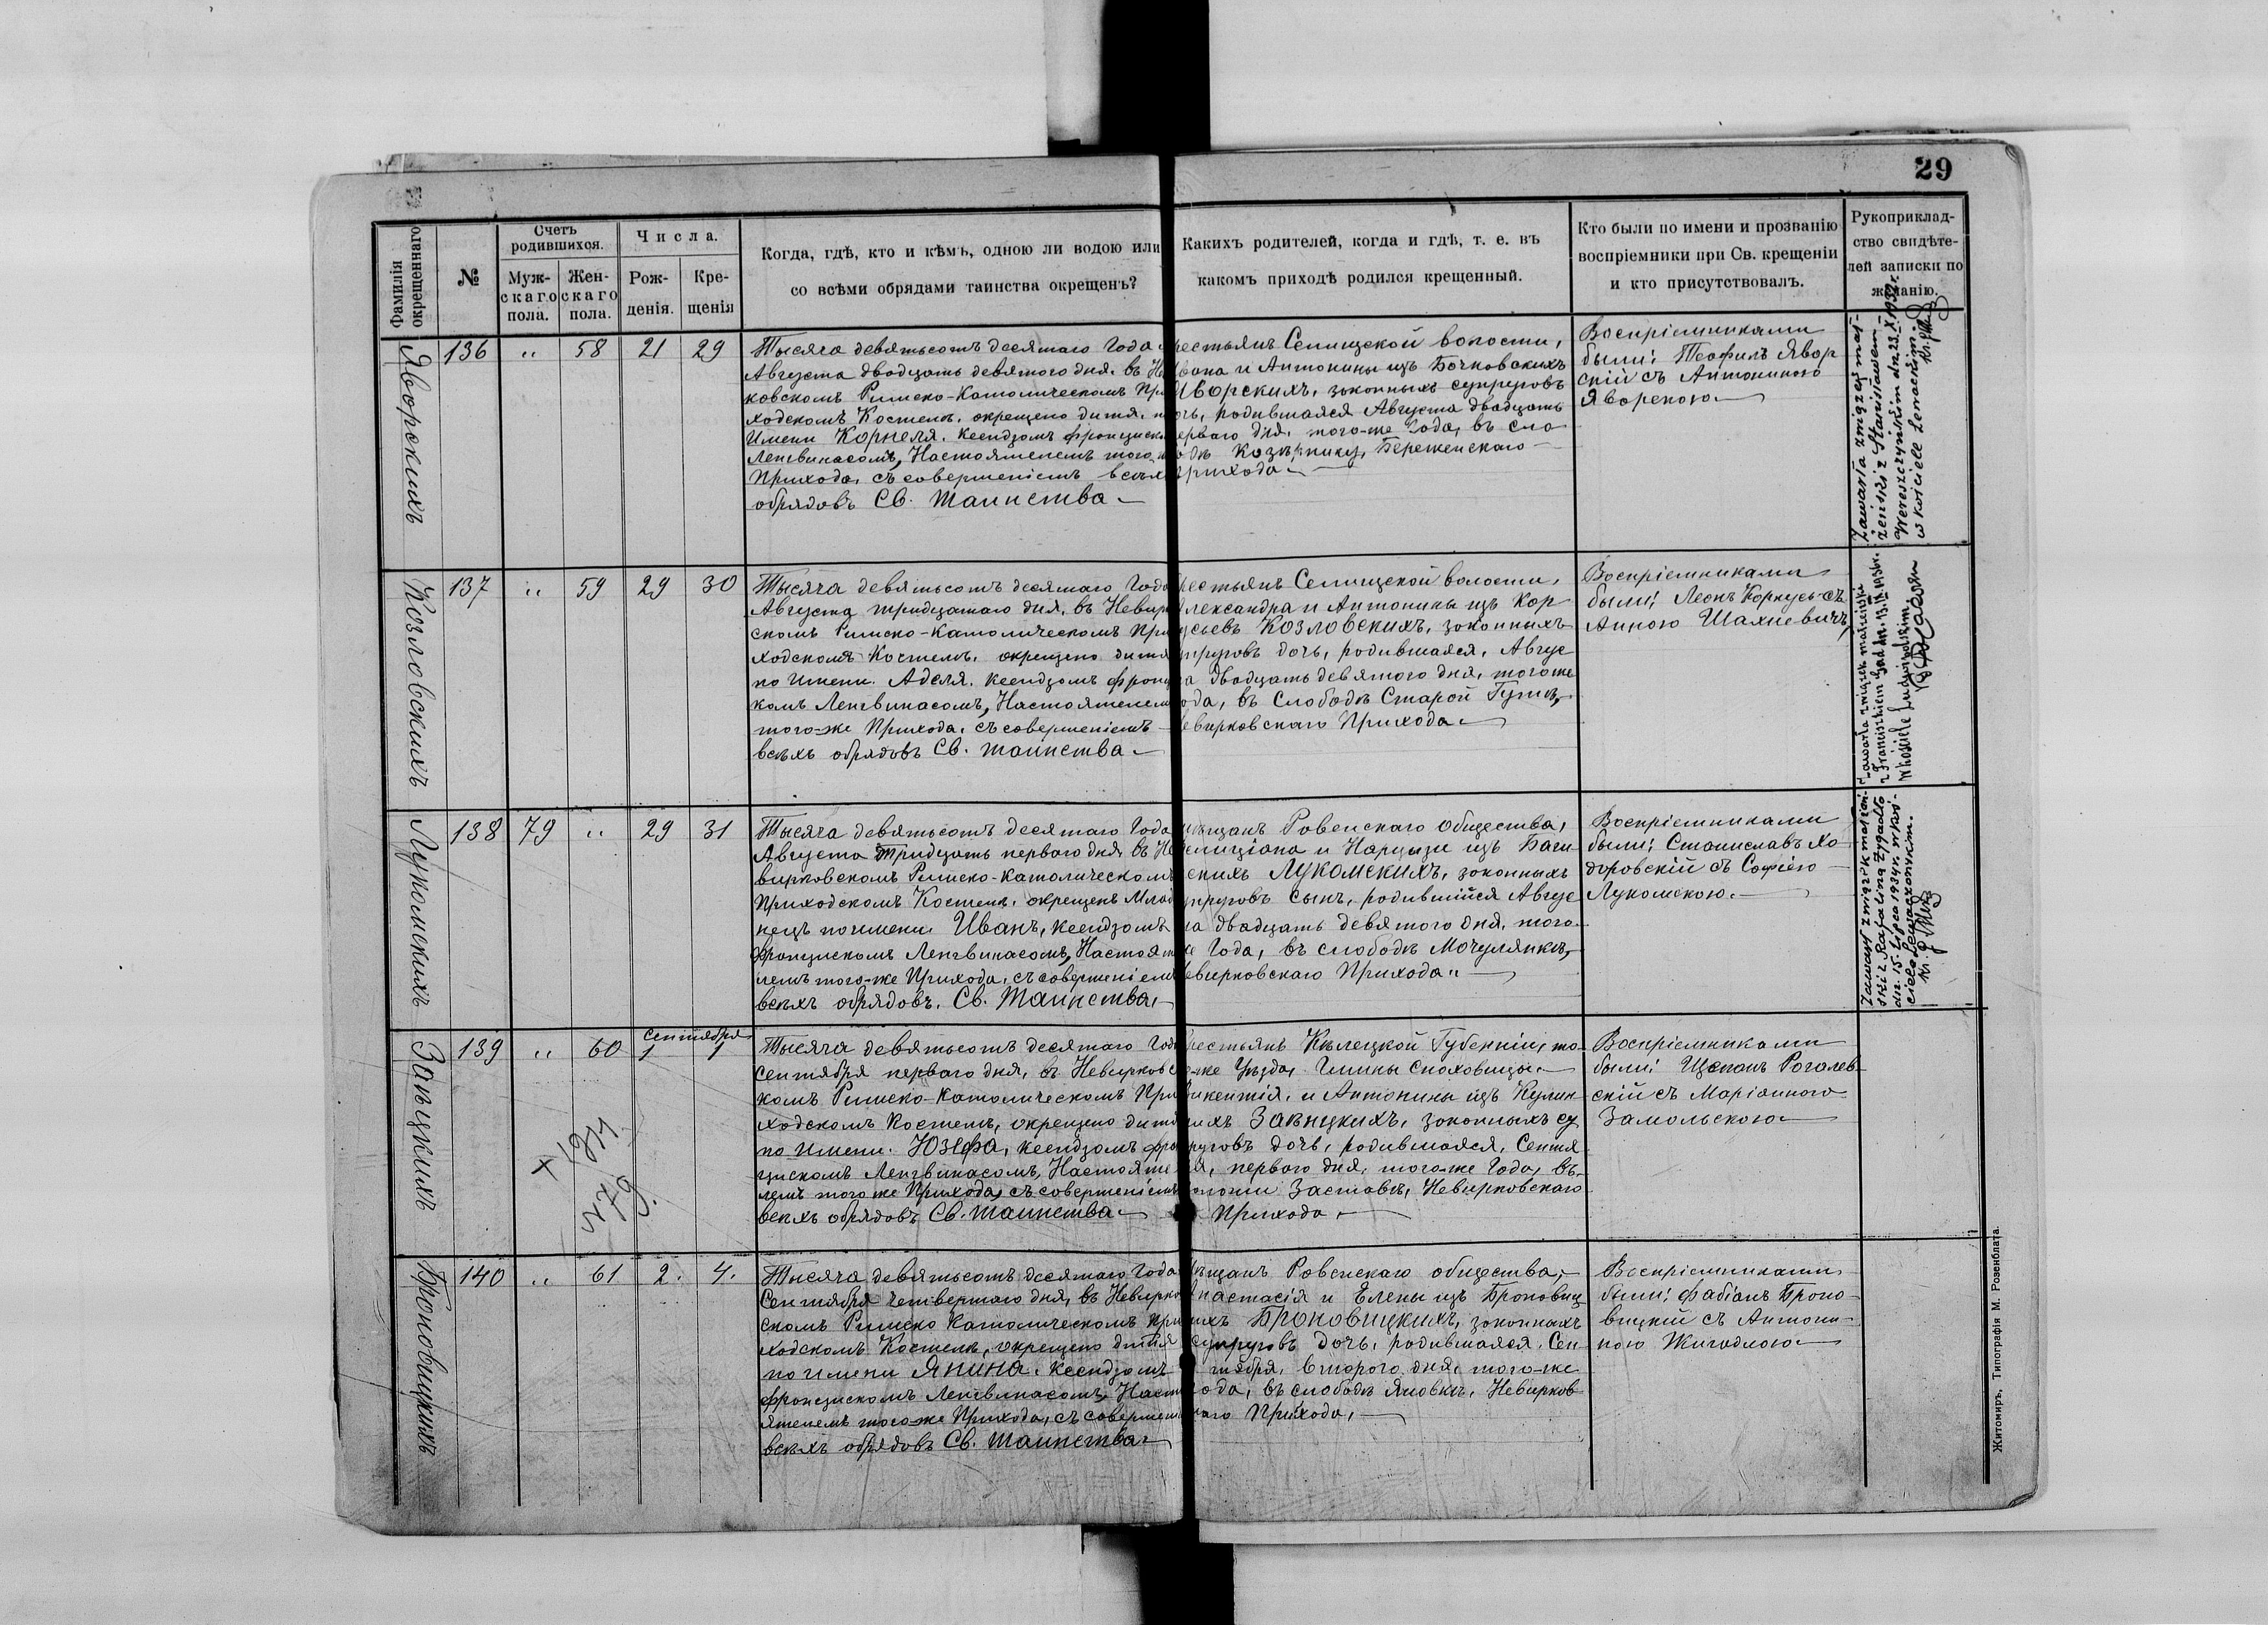 29
Фамилія окрещеннаго
№
Счетъ родившихся.
Муж-скаго пола.
Жен-скаго пола.
Числа.
Рож-денія.
Кре-щенія
Когда, гдѣ, кто и кѣмъ, одною ли водою или
со всѣми обрядами таинства окрещенъ?
Какихъ родителей, когда и гдѣ, т. е. въ
какомъ приходѣ родился крещенный.
Кто были по имени и прозванію
воспріемники при Св. крещеніи
и кто присутствовалъ.
Рукоприклад-
ство свидѣте-
лей записки по
желанію.
Яворскихъ
136 " 58 21 29
Тысяча девятьсотъ десятаго Года
Августа двадцать девятого дня. въ Не
ковскомъ Римско-Католическомъ При
ходскомъ Костелѣ. окрещено дитя. по
Имени Корнеля. Ксендзомъ Францишк
Ленгвинасомъ, Настоятелемъ того
Прихода, съ совершеніемъ всѣхъ
обрядовъ Св. Таинства
рестьянъ Селищской волости,
вана и Антонины изъ Бочковскихъ
Яворскихъ, законныхъ супруговъ
очь, родившаяся Августа двадцать
ерваго дня. того-же Года, въ сло
одѣ Бережескаго
Прихода
Воспріемниками
были: Теофиль Явор
скій съ Антониною
Яворскою
Zawarła związek mał-
żeński z Stanisławem
Wereszczyńskim dn. 23.X 1932 r.
w kościele Lenackim.
Козловскихъ
137 " 59 29 30
Тысяча девятьсотъ десятаго Года
Августа тридцатаго дня, въ Невир
скомъ Римско-Католическомъ При
ходскомъ Костелѣ. окрещено дитя
по Имени. Аделя. Ксендзомъ Франц
комъ Ленгвинасомъ, Настоятелем
того-же Прихода. съ совершеніемъ
всѣхъ обрядовъ Св. таинства
рестьянъ Селищской волости.
лександра и Антонины изъ Кор
усьевъ Козловскихъ, законныхъ
упруговъ дочь, родившаяся, Авгус
а двадцать девятого дня, того же
ода, въ Слободѣ Старой Гутѣ,
евирковскаго Прихода
Воспріемниками
были: Леонъ Корнусь съ
Анною Шахневичъ
Zawarła związek małżeński
z Franciszkiem
w kościele Ludwipolskim
Лукомскихъ
138 79 " 29 31
Тысяча девятьсотъ десятаго Года
Августа Тридцать перваго дня въ Не
вирковскомъ Римско-Католическомъ
Приходскомъ Костелѣ. окрещенъ Млад
нецъ по имени. Иванъ, Ксендзомъ
Францискомъ Ленгвинасомъ, Настоят
лемъ того-же Прихода, съ совершеніем
всѣхъ обрядовъ. Св. Таинства,
ѣщанъ Ровенскаго Общества,
елиціана и Нарцызи изъ Баги
скихъ Лукомскихъ, законныхъ
упруговъ Сынъ, родившійся Авгус
та двадцать девятого дня, того
же Года, въ слободѣ Мочулянкѣ,
евирковскаго Прихода
Воспріемниками
были: Станиславъ Хо
доровскій съ Софіею
Лукомскою.
Zawarł związek małżeń-
ski z Rafaliną Żygadło
dn. 15. lipca 1934 r. w koś-
ciele Lewaczowskim.
Заѣцкихъ
139 " 60 Сентября 1 1
Тысяча девятьсотъ десятаго Года
Сентября перваго дня, въ Невирковс
комъ Римско-Католическомъ При
ходскомъ Костелѣ, окрещено дитя
по Имени. Юзефа, Ксендзомъ Фран
цискомъ Ленгвинасомъ, Настояте
лемъ того же Прихода, съ совершеніемъ
всѣхъ обрядовъ Св. таинства
рестьянъ Кѣлецкой Губерніи, то
же Уѣзда, Гмины Сноховицы
икентія, и Антонины изъ Кулин
ихъ Заѣцкихъ, законныхъ су
руговъ дочь, родившаяся, Сентя
я, перваго дня, того же Года, въ
Заставѣ, Невирковскаго
Прихода
Воспріемниками
были: Щепанъ Рогалев
скій съ Маріанною
Замольскою
Броновицкихъ
140 " 61 2. 4.
Тысяча девятьсотъ десятаго Года
Сентября четвертаго дня, въ Невирко
скомъ Римско Католическомъ При
ходскомъ Костелѣ, окрещено дитя
по имени Янина. Ксендзомъ
Францискомъ Ленгвинасомъ, Наст
ятелемъ того-же Прихода, съ соверше
всѣхъ обрядовъ Св. Таинства
ѣщанъ Ровенскаго общества,
настасія и Елены изъ Броновиц
ихъ Броновицкихъ, законныхъ
супруговъ дочь, родившаяся, Сен
тября, второго дня, того-же
ода, въ слободѣ Яновкѣ, Невирков
каго Прихода,
Воспріемниками
были: Фабіанъ Броно
вицкій съ Антони-
ною Жигадлою
Житомиръ, Типографія М. Розенблата.